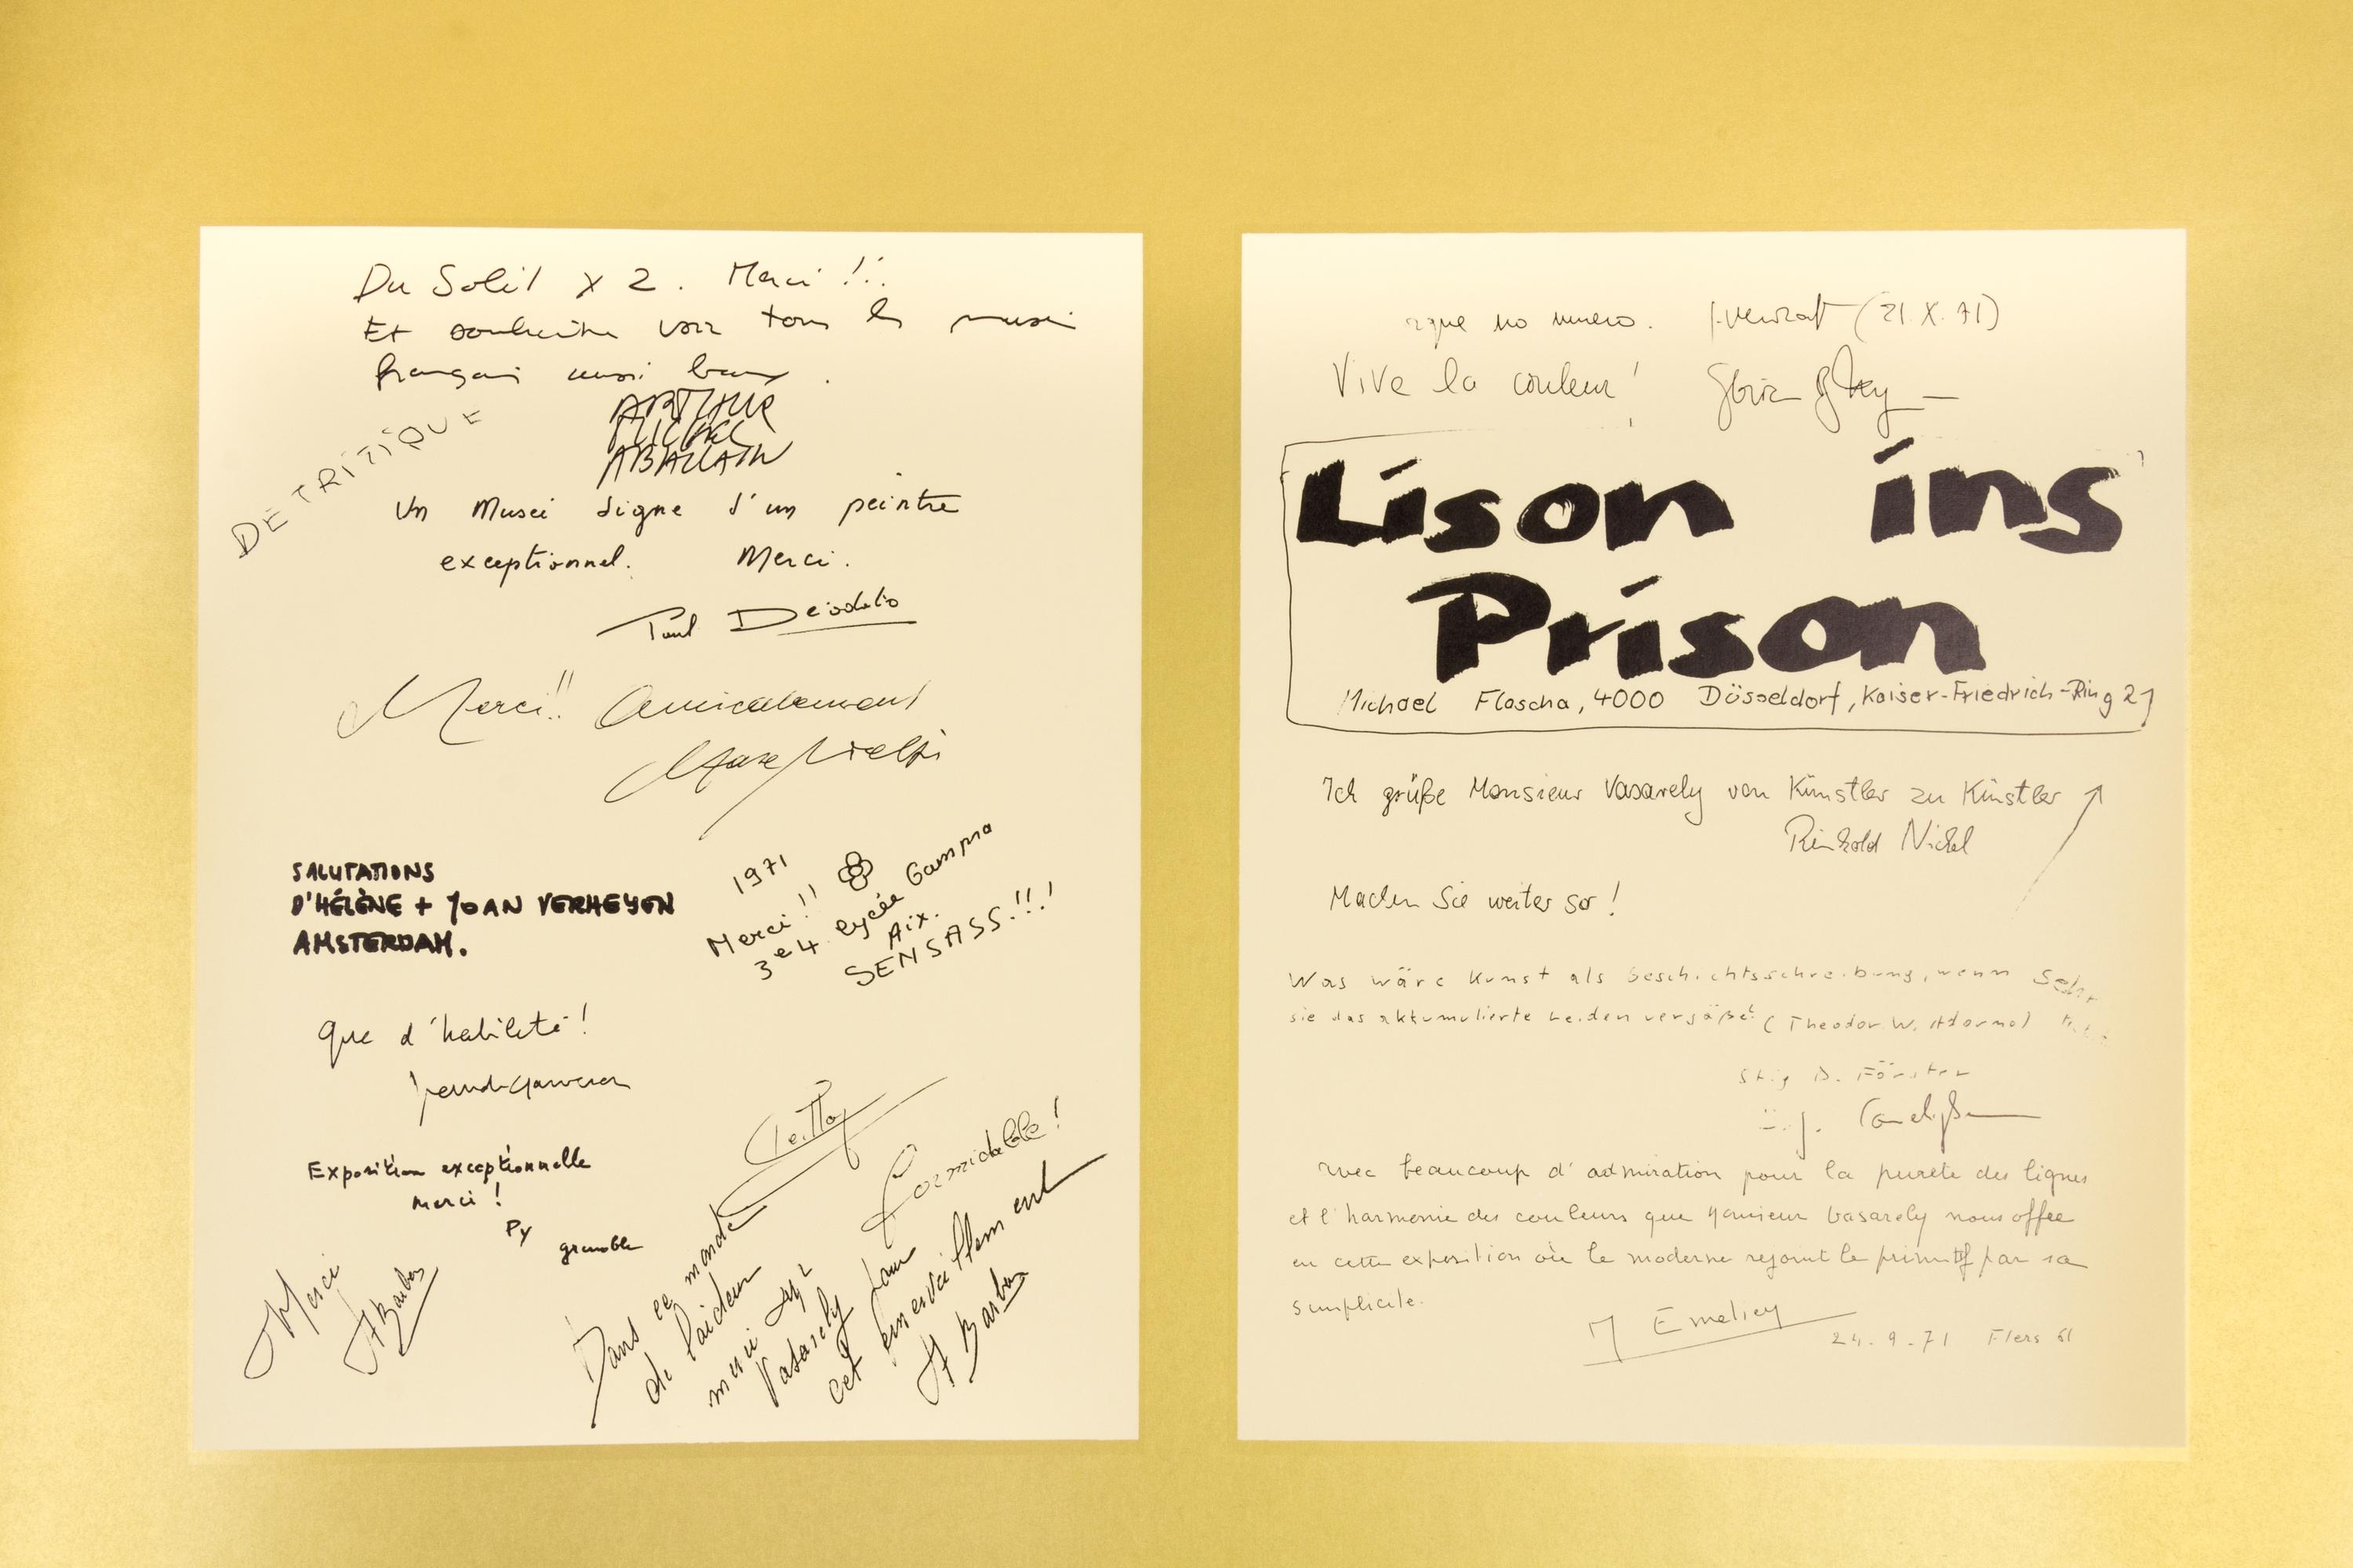 Du Soleil x 2. Merci !!!
Et souhaite voir tous les
français aussi beaux.
DÉTRITIQUE
ARTHUR
MICHEL
ABALLAIN
Un Musée digne d'un peintre
exceptionnel. Merci.
Paul
Merci!! Amicalement
SALUTATIONS
D'HÉLÈNE + YOAN VERHEYEN
AMSTERDAM.
1971
Merci!!
3e4 lycée Campra
Aix.
SENSASS.!!!
Que d'habileté!
Exposition exceptionnelle
merci!
Py
grenoble
Merci
A Barbon
Formidable!
Dans ce monde
de laideur
merci à Mr
Vasarely pour
cet émerveillement
A Barbon
(21.X.71)
Vive la couleur!
Lison ins
Prison
Michael Flascha, 4000 Düsseldorf, Kaiser-Friedrich-Ring 27
Ich grüße Monsieur Vasarely von Künstler zu Künstler
Reinhold Nickel
Machen Sie weiter so!
Was wäre Kunst als Geschichtsschreibung, wenn
sie das akkumulierte Leiden vergäße? (Theodor W. Adorno)
Stig D. Förster
avec beaucoup d'admiration pour la pureté des lignes
et l'harmonie des couleurs que Monsieur Vasarely nous offre
en cette exposition où le moderne rejoint le primitif par sa
simplicité.
24.9.71 Flers 61